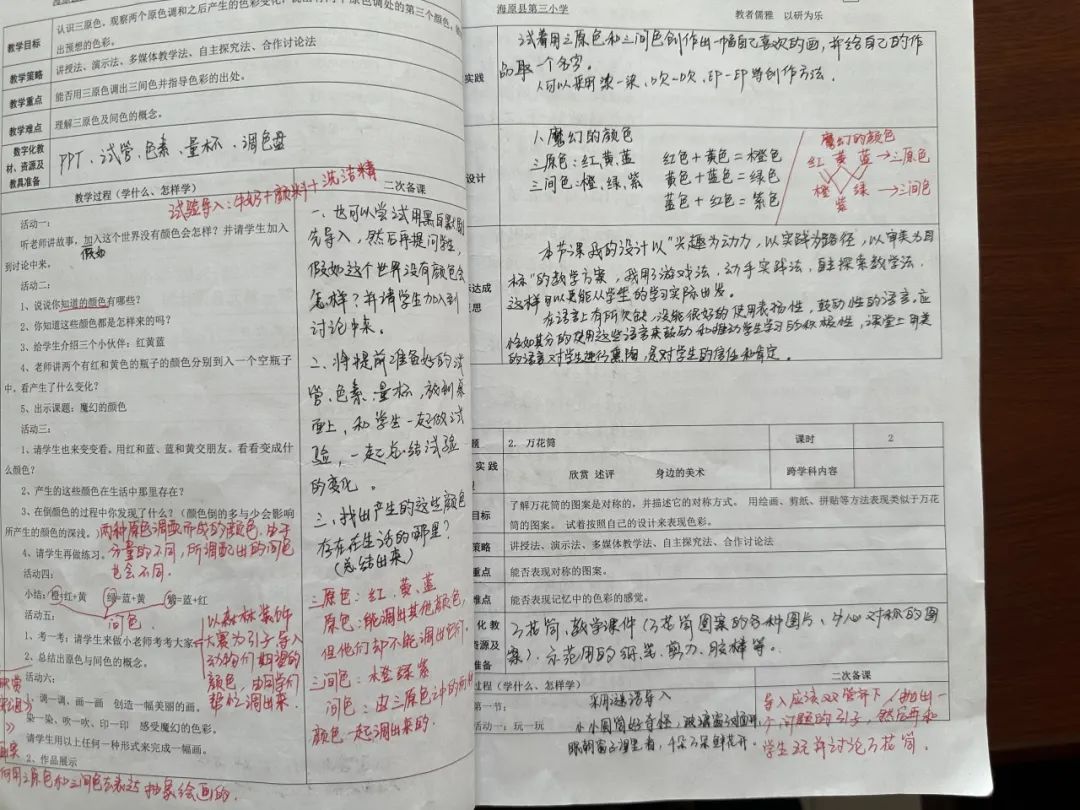 教学目标
认识三原色，观察两个原色调和之后产生的色彩变化，说出有两个原色调处的第三个颜色，
出预想的色彩。
教学策略
讲授法、演示法、多媒体教学法、自主探究法、合作讨论法
教学重点
能否用三原色调出三间色并指导色彩的出处。
教学难点
理解三原色及间色的概念。
数字化教
材、资源及
教具准备
PPT、试管、色素、量杯、调色盘
教学过程（学什么、怎样学）
试验导入：牛奶+颜料+洗洁精
活动一：
听老师讲故事，加入这个世界没有颜色会怎样？并请学生加入
假如
到讨论中来。
活动二：
1、说说你知道的颜色有哪些？
2、你知道这些颜色都是怎样来的吗？
3、给学生介绍三个小伙伴：红黄蓝
4、老师讲两个有红和黄色的瓶子的颜色分别到入一个空瓶子
中，看产生了什么变化？
5、出示课题：魔幻的颜色
活动三：
1、请学生也来变变看，用红和蓝、蓝和黄交朋友，看看变成什
么颜色？
2、产生的这些颜色在生活中那里存在？
3、在倒颜色的过程中你发现了什么？（颜色倒的多与少会影响
所产生的颜色的深浅。）
两种原色调配而成的颜色，由于
分量的不同，所调配出的间色
也会不同．
4、请学生再做练习。
活动四：
小结：橙=红+黄 绿=蓝+黄 紫=蓝+红
间色
活动五：
1、考一考：请学生来做小老师考考大家
2、总结出原色与间色的概念。
以森林装饰
大赛为引子导入
动物们期望的
颜色，由同学们
帮忙调出来．
活动六：
1、调一调，画一画 创造一幅美丽的画。
染一染、吹一吹、印一印 感受魔幻的色彩。
请学生用以上任何一种形式来完成一幅画。
2、作品展示
何用三原色和三间色去表达抽象绘画的．
二次备课
一、也可以尝试用黑白
先导入，然后再提问学生，
假如这个世界没有颜色会
怎样？并请学生加入到
讨论中来。
二、将提前准备好的试
管、色素、量杯，放到桌
面上，和学生一起做试
验，一起总结试验
的变化。
三、找出产生的这些颜色
存在在生活的哪里？
（总结出来）
三原色：红、黄、蓝
原色：能调出其他颜色，
但他们却不能调出它们．
三间色：橙绿紫
间色：由三原色中的两
颜色一起调出来的．
海原县第三小学
教者儒雅 以研为乐
实践
试着用三原色和三间色创作出一幅自己喜欢的画，并给自己的作
品取一个名字。
人可以采用染一染、吹一吹、印一印等创作方法．
设计
1、魔幻的颜色
三原色：红、黄、蓝 红色+黄色=橙色
三间色：橙、绿、紫 黄色+蓝色=绿色
蓝色+红色=紫色
魔幻的颜色
红 黄 蓝→三原色
橙 绿→三间色
紫
达成
思
本节课我的设计以"兴趣为动力，以实践为路径，以审美为目
标"的教学方案，我用了游戏法，动手实践法，自主探索教学法．
这样可以更能从学生的学习实际出发。
在语言上有所欠缺，没能很好的使用表扬性，鼓动性的语言，应
恰如其分的使用这些语言来鼓动和推动学生学习的积极性，课堂上用美
的语言对学生进行熏陶，是对学生的信任和肯定。
题
2. 万花筒
课时
2
实践
欣赏 述评 身边的美术
跨学科内容
目标
了解万花筒的图案是对称的，并描述它的对称方式。 用绘画、剪纸、拼贴等方法表现类似于万花
筒的图案。 试着按照自己的设计来表现色彩。
策略
讲授法、演示法、多媒体教学法、自主探究法、合作讨论法
重点
能否表现对称的图案。
难点
能否表现记忆中的色彩的感觉。
化教
资源及
准备
万花筒，教学课件（万花筒图案的各种图片、中心对称的图
案）、示范用的纸、笔、剪刀、胶棒等。
过程（学什么、怎样学）
二次备课
第一节：
采用谜语导入
活动一：玩一玩
小小圆筒好奇怪，
眼朝筒子洞里看，千朵万朵鲜花开．
导入应该
个问题的引子，然后再和
学生玩并讨论万花筒．